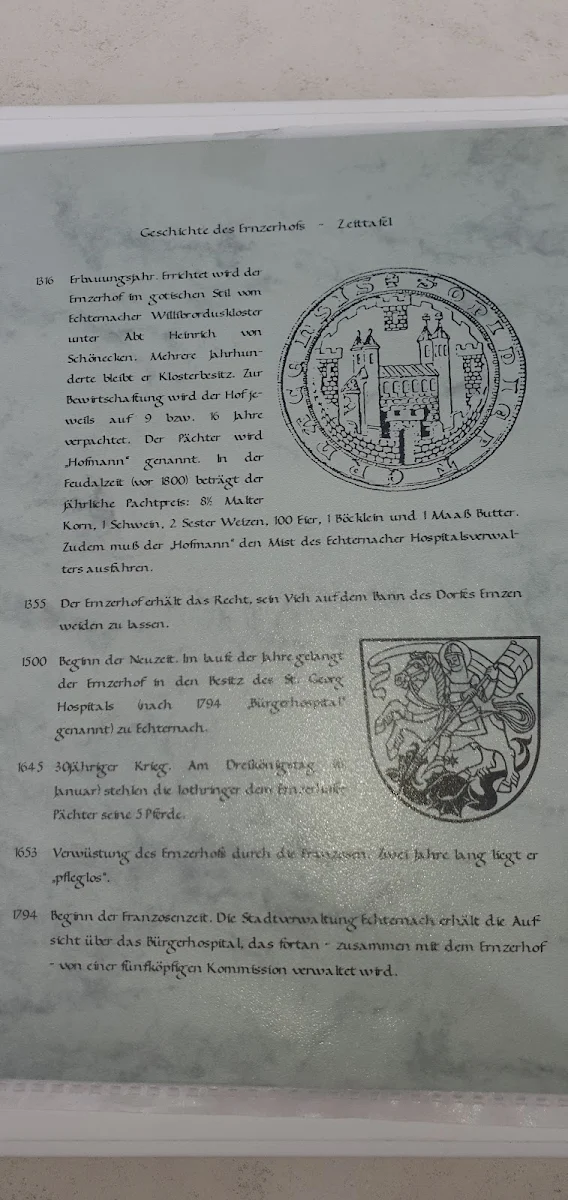 Geschichte des Ernzerhofs - Zeittafel
1316 Erbauungsjahr. Errichtet wird der
Ernzerhof im gotischen Stil vom
Echternacher Willibrorduskloster
unter Abt Heinrich von
Schönecken. Mehrere Jahrhun-
derte bleibt er Klosterbesitz. Zur
Bewirtschaftung wird der Hof je-
weils auf 9 bzw. 16 Jahre
verpachtet. Der Pächter wird
„Hofmann" genannt. In der
Feudalzeit (vor 1800) beträgt der
jährliche Pachtpreis: 8½ Malter
Korn, 1 Schwein, 2 Sester Weizen, 100 Eier, 1 Böcklein und 1 Maaß Butter.
Zudem muß der „Hofmann" den Mist des Echternacher Hospitalsverwal-
ters ausfahren.
1355 Der Ernzerhof erhält das Recht, sein Vieh auf dem Bann des Dorfes Ernzen
weiden zu lassen.
1500 Beginn der Neuzeit. Im laufe der Jahre gelangt
der Ernzerhof in den Besitz des St. Georg
Hospitals (nach 1794 „Bürgerhospital"
genannt) zu Echternach.
1645 30jähriger Krieg. Am Dreikönigstag
Januar) stehlen die lothringer dem Ernzerhofer
Pächter seine 5 Pferde.
1653 Verwüstung des Ernzerhofs durch die Franzosen. Zwei Jahre lang liegt er
„pfleglos".
1794 Beginn der Franzosenzeit. Die Stadtverwaltung Echternach erhält die Auf-
sicht über das Bürgerhospital, das fortan - zusammen mit dem Ernzerhof
- von einer fünfköpfigen Kommission verwaltet wird.